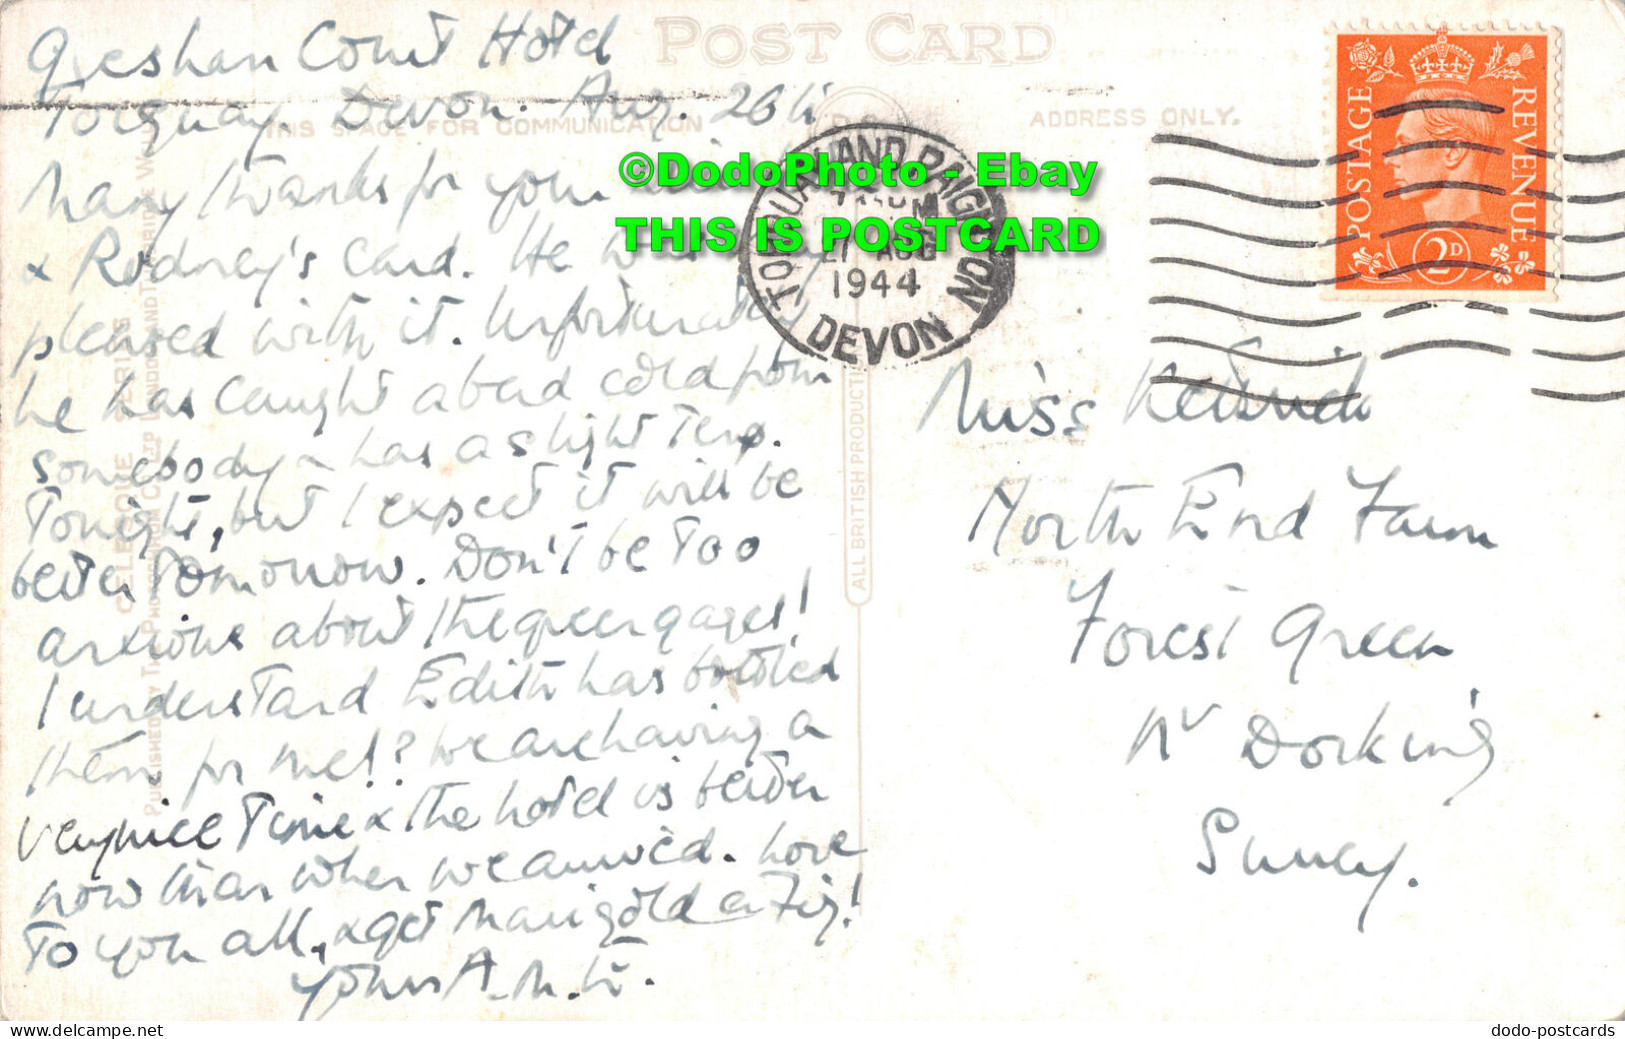 POST CARD
Gresham Court Hotel
Torquay. Devon. Aug. 26th
THIS SPACE FOR COMMUNICATION
ADDRESS ONLY.
Many thanks for your
& Rodney's card. He was
pleased with it. Unfortunately
he has caught a bad cold from
somebody & has a slight temp.
Tonight, but I expect it will be
better tomorrow. Don't be too
anxious about the greengages!
I understand Edith has bottled
them for me!? We are having a
very nice time & the hotel is better
now than when we arrived. Love
to you all, & get Marigold a Fig!
Yours A.M.W.
TORQUAY AND PAIGNTON
27 AUG
1944
DEVON
POSTAGE
REVENUE
2D
Miss
North End Farm
Forest Green
Nr Dorking
Surrey.
ALL BRITISH PRODUCTION
CELESQUE SERIES
©DodoPhoto - Ebay
THIS IS POSTCARD
www.delcampe.net
dodo-postcards